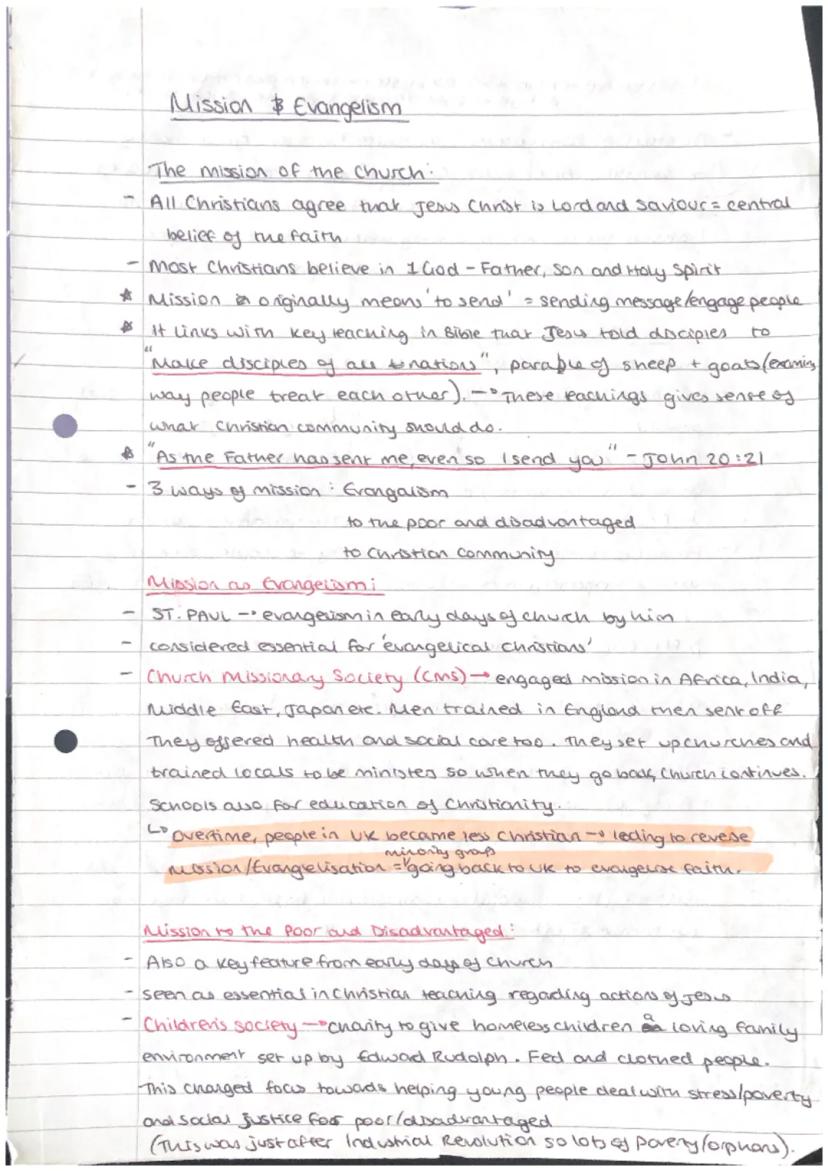 Mission & Evangelism
The mission of the Church:
- All Christians agree that Jesus Christ is Lord and Saviour = central
belief of the faith
- Most Christians believe in 1 God - Father, Son and Holy Spirit
* Mission originally means 'to send' = sending message/engage people
* It links with key teaching in Bible that Jesus told disciples to
"Make disciples of all nations", parable of sheep + goats (examing
way people treat each other). → These teachings gives sense of
what Christian community should do.
* "As the Father has sent me, even so I send you" - John 20:21
- 3 ways of mission : Evangalism
to the poor and disadvantaged
to Christian community
Mission as Evangelism:
- ST. PAUL → evangelism in early days of church by him
- considered essential for 'evangelical Christians'
- Church Missionary Society (CMS) → engaged mission in Africa, India,
Middle East, Japan etc. Men trained in England then sent off
They offered health and social care too. They set up churches and
trained locals to be ministers so when they go back, Church continues.
Schools also for education of Christianity.
↳ Overtime, people in UK became less Christian → leding to revese
minority group
Mission/Evangielisation = going back to UK to evangelise faith.
Mission to the Poor and Disadvantaged:
- Also a key feature from early days of Church
- seen as essential in Christian teaching regarding actions of Jesus
- Children's Society → charity to give homeless children a loving family
environment set up by Edward Rudolph. Fed and clothed people.
This changed focus towards helping young people deal with stress/poverty
and social justice for poor/disadvantaged
(This was just after Industrial Revolution so lots of poverty/orphans).